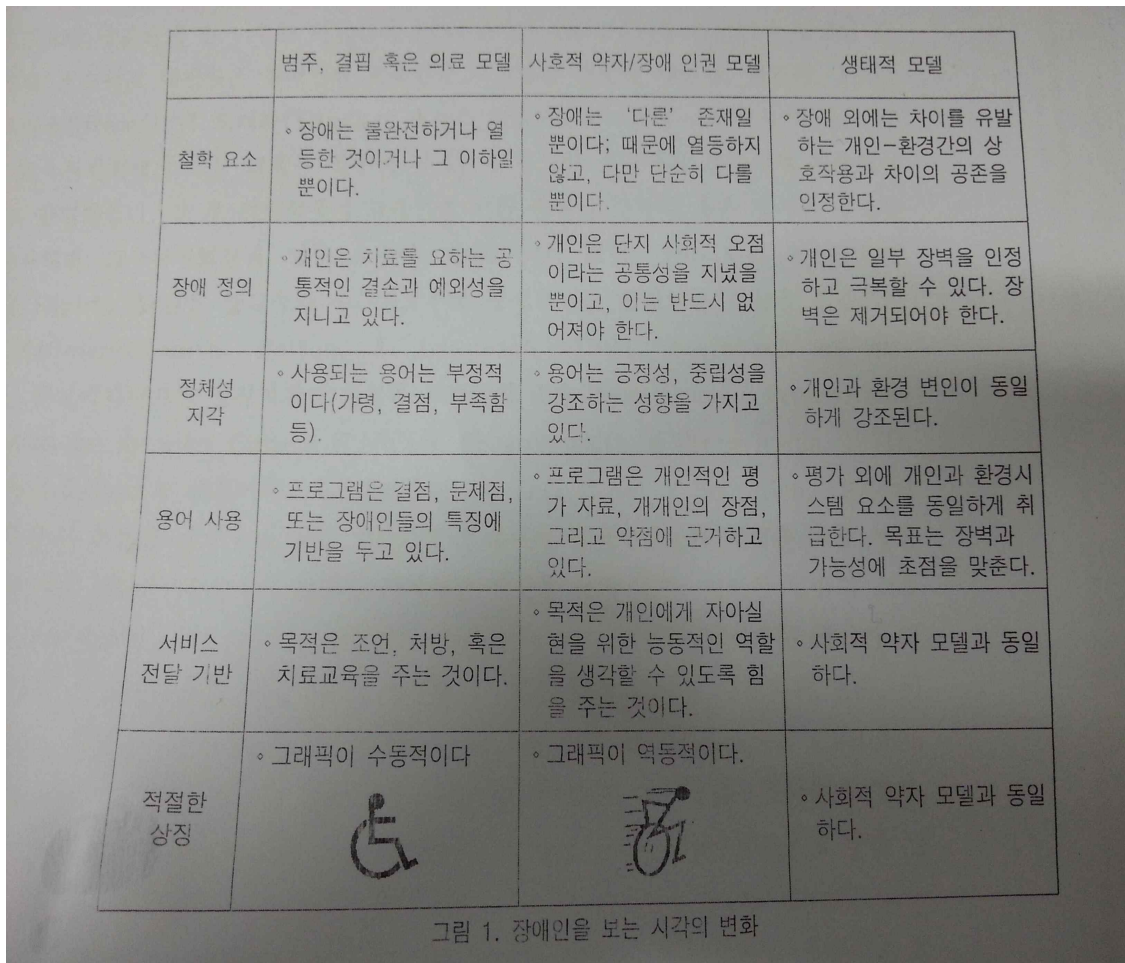 범주, 결핍 혹은 의료 모델
사호적 약자/장애 인권 모델
생태적 모델
철학 요소
◦ 장애는 불완전하거나 열
등한 것이거나 그 이하일
뿐이다.
◦ 장애는 ‘다른’ 존재일
뿐이다; 때문에 열등하지
않고, 다만 단순히 다를
뿐이다.
◦ 장애 외에는 차이를 유발
하는 개인-환경간의 상
호작용과 차이의 공존을
인정한다.
장애 정의
◦ 개인은 치료를 요하는 공
통적인 결손과 예외성을
지니고 있다.
◦ 개인은 단지 사회적 오점
이라는 공통성을 지녔을
뿐이고, 이는 반드시 없
어져야 한다.
◦ 개인은 일부 장벽을 인정
하고 극복할 수 있다. 장
벽은 제거되어야 한다.
정체성
지각
◦ 사용되는 용어는 부정적
이다(가령, 결점, 부족함
등).
◦ 용어는 긍정성, 중립성을
강조하는 성향을 가지고
있다.
◦ 개인과 환경 변인이 동일
하게 강조된다.
용어 사용
◦ 프로그램은 결점, 문제점,
또는 장애인들의 특징에
기반을 두고 있다.
◦ 프로그램은 개인적인 평
가 자료, 개개인의 장점,
그리고 약점에 근거하고
있다.
◦ 평가 외에 개인과 환경시
스템 요소를 동일하게 취
급한다. 목표는 장벽과
가능성에 초점을 맞춘다.
서비스
전달 기반
◦ 목적은 조언, 처방, 혹은
치료교육을 주는 것이다.
◦ 목적은 개인에게 자아실
현을 위한 능동적인 역할
을 생각할 수 있도록 힘
을 주는 것이다.
◦ 사회적 약자 모델과 동일
하다.
적절한
상징
◦ 그래픽이 수동적이다
◦ 그래픽이 역동적이다.
◦ 사회적 약자 모델과 동일
하다.
그림 1. 장애인을 보는 시각의 변화